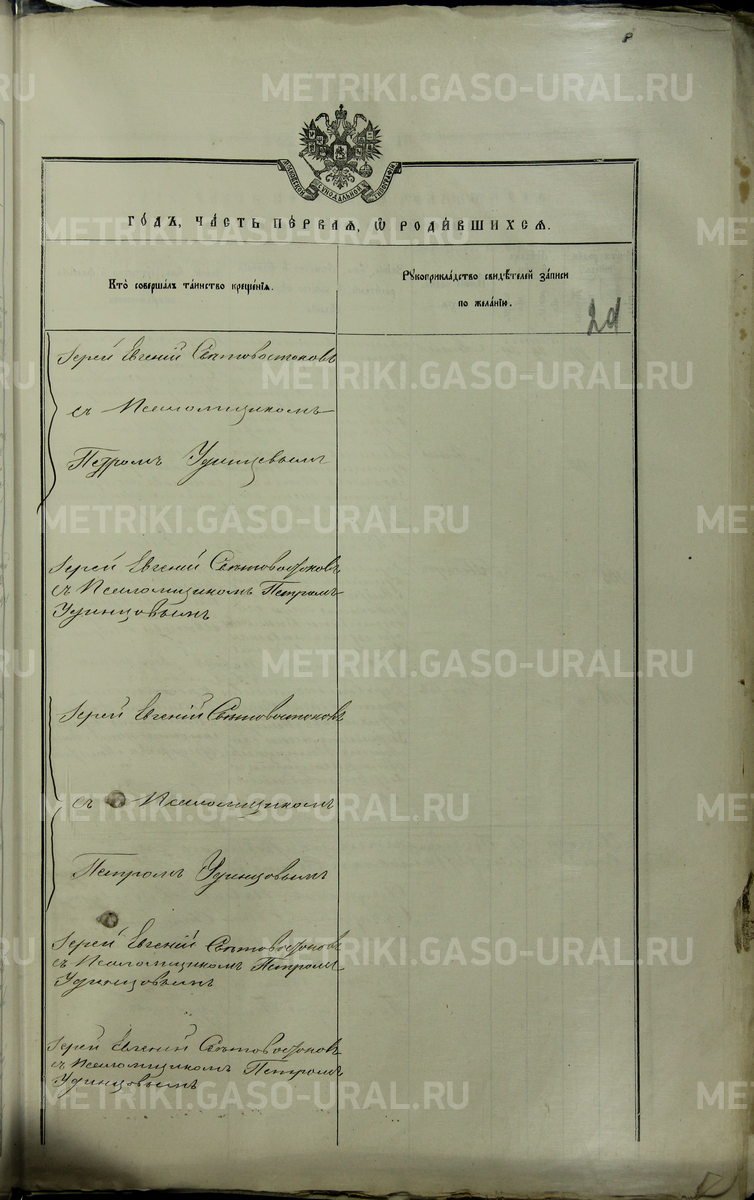 METRIKI.GASO-URAL.RU
МОСКОВСКОЙ СѴНОДАЛЬНОЙ ТИПОГРАФІИ
ГО́ДЪ, ЧА́СТЬ ПЕ́РВАѦ, Ѡ҆ РОДИ́ВШИХСѦ.
Кто̀ совершалъ та́инство креще́нїѧ.
Рꙋкоприкла́дство свидѣ́телей за́писи
по жела́нїю.
Іерей Евгеній Свѣтовостоковъ
съ Псаломщикомъ
Петромъ Удинцевымъ
Іерей Евгеній Свѣтовостоковъ
съ Псаломщикомъ Петромъ
Удинцовымъ
Іерей Евгеній Свѣтовостоковъ
съ Псаломщикомъ
Петромъ Удинцовымъ
Іерей Евгеній Свѣтовостоковъ
съ Псаломщикомъ Петромъ
Удинцовымъ
Іерей Евгеній Свѣтовостоковъ
съ Псаломщикомъ Петромъ
Удинцовымъ